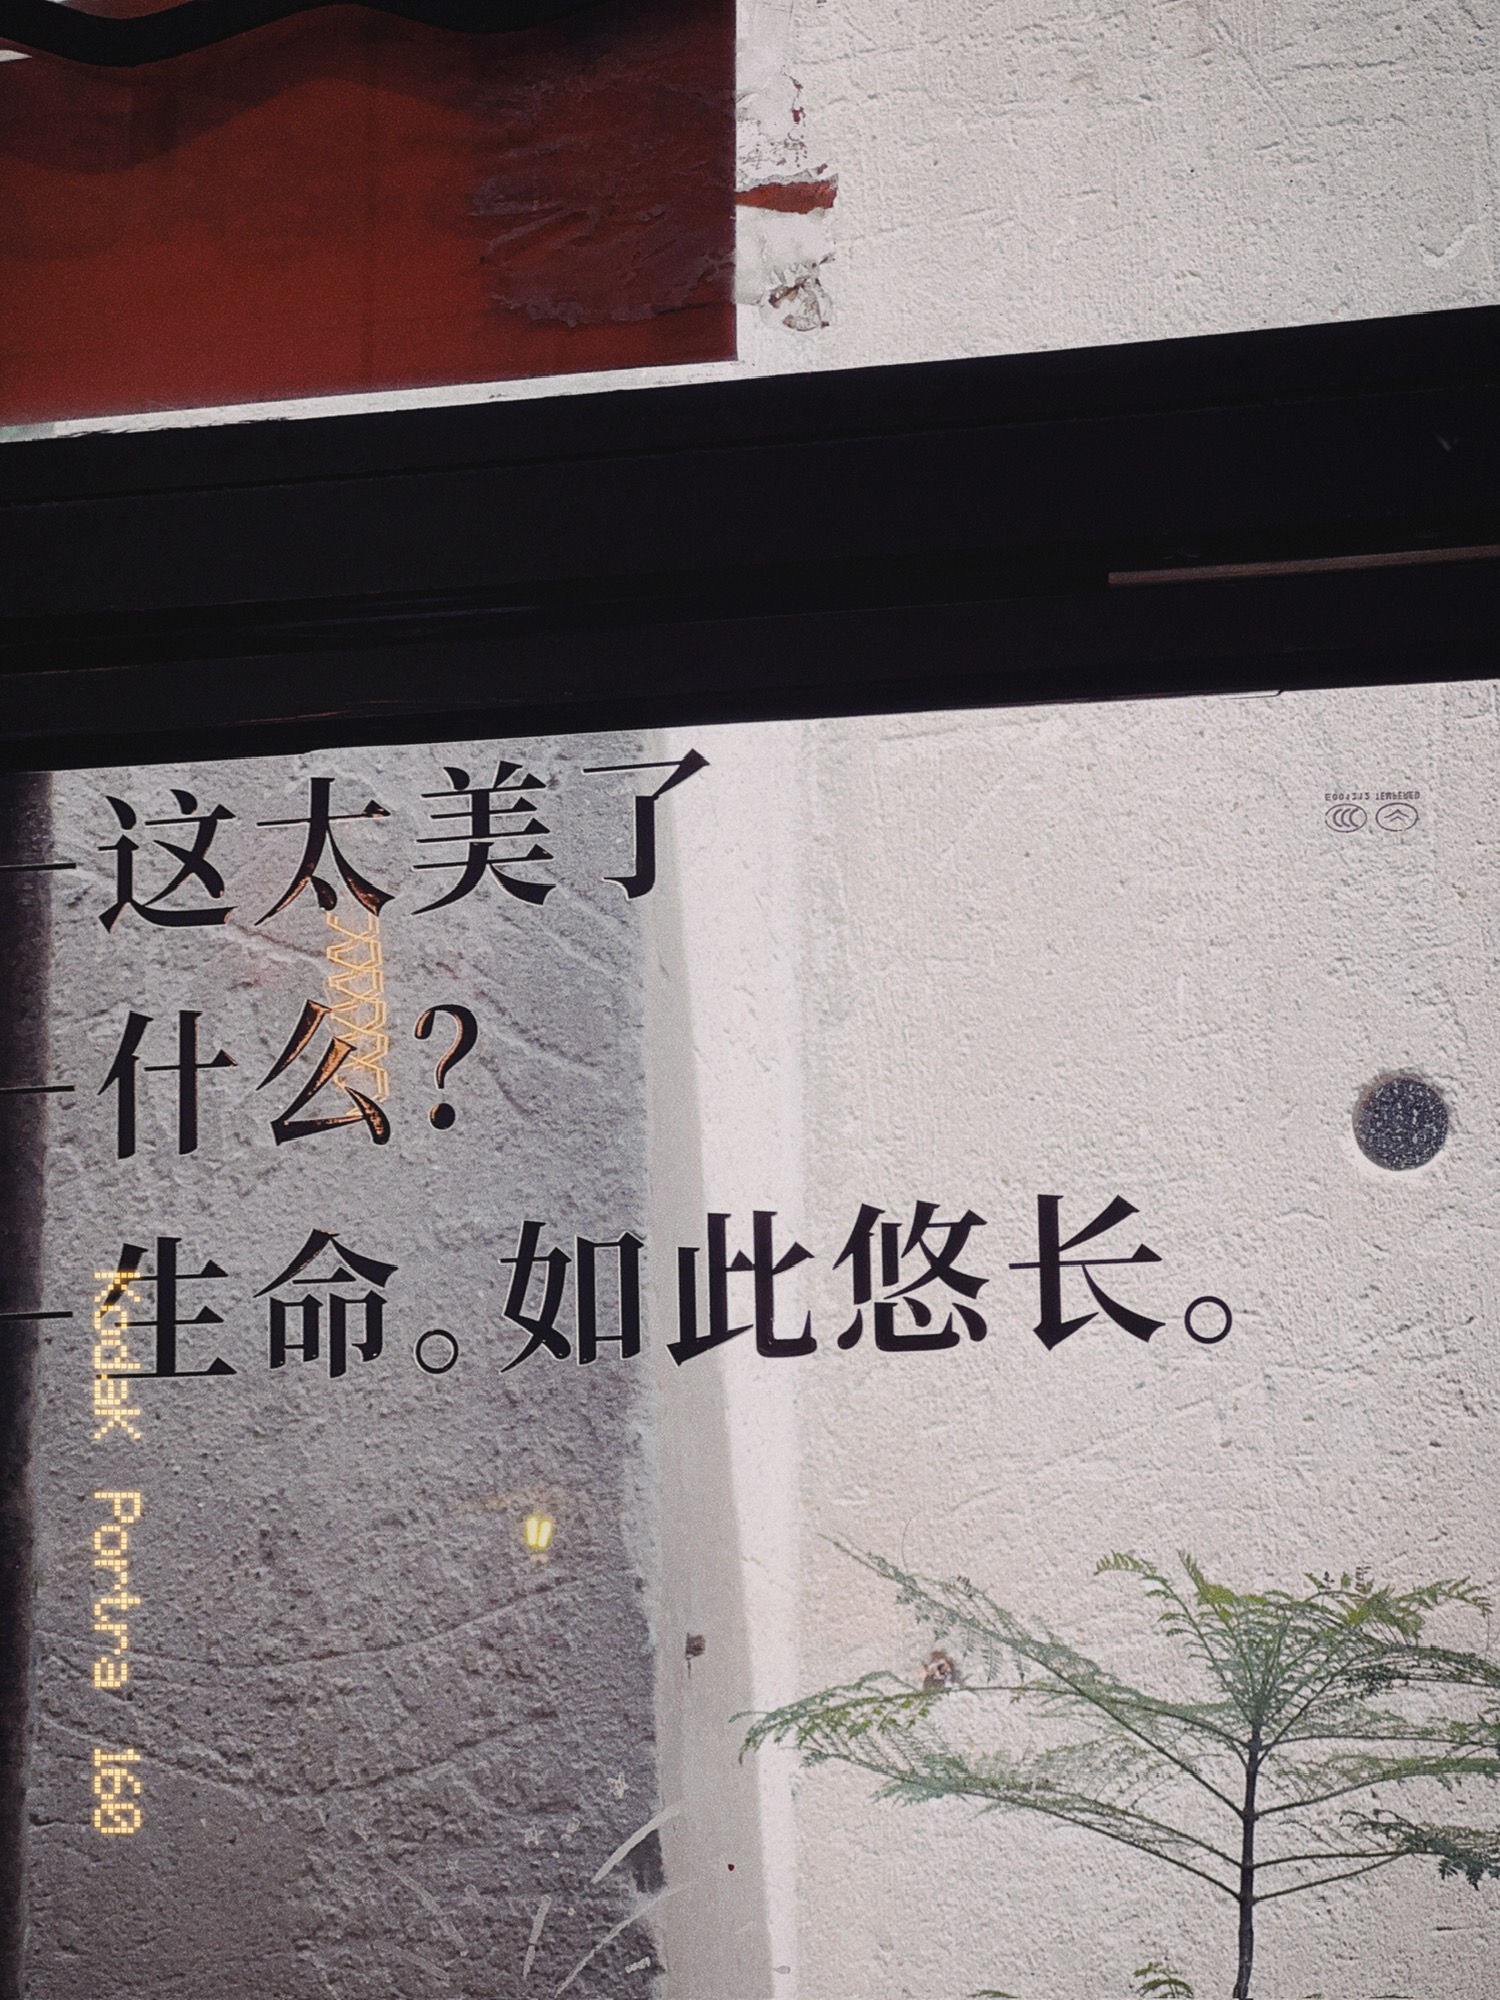 —这太美了
—什么?
—生命。如此悠长。
Kodak Portra 160
E001212 TEMPERED